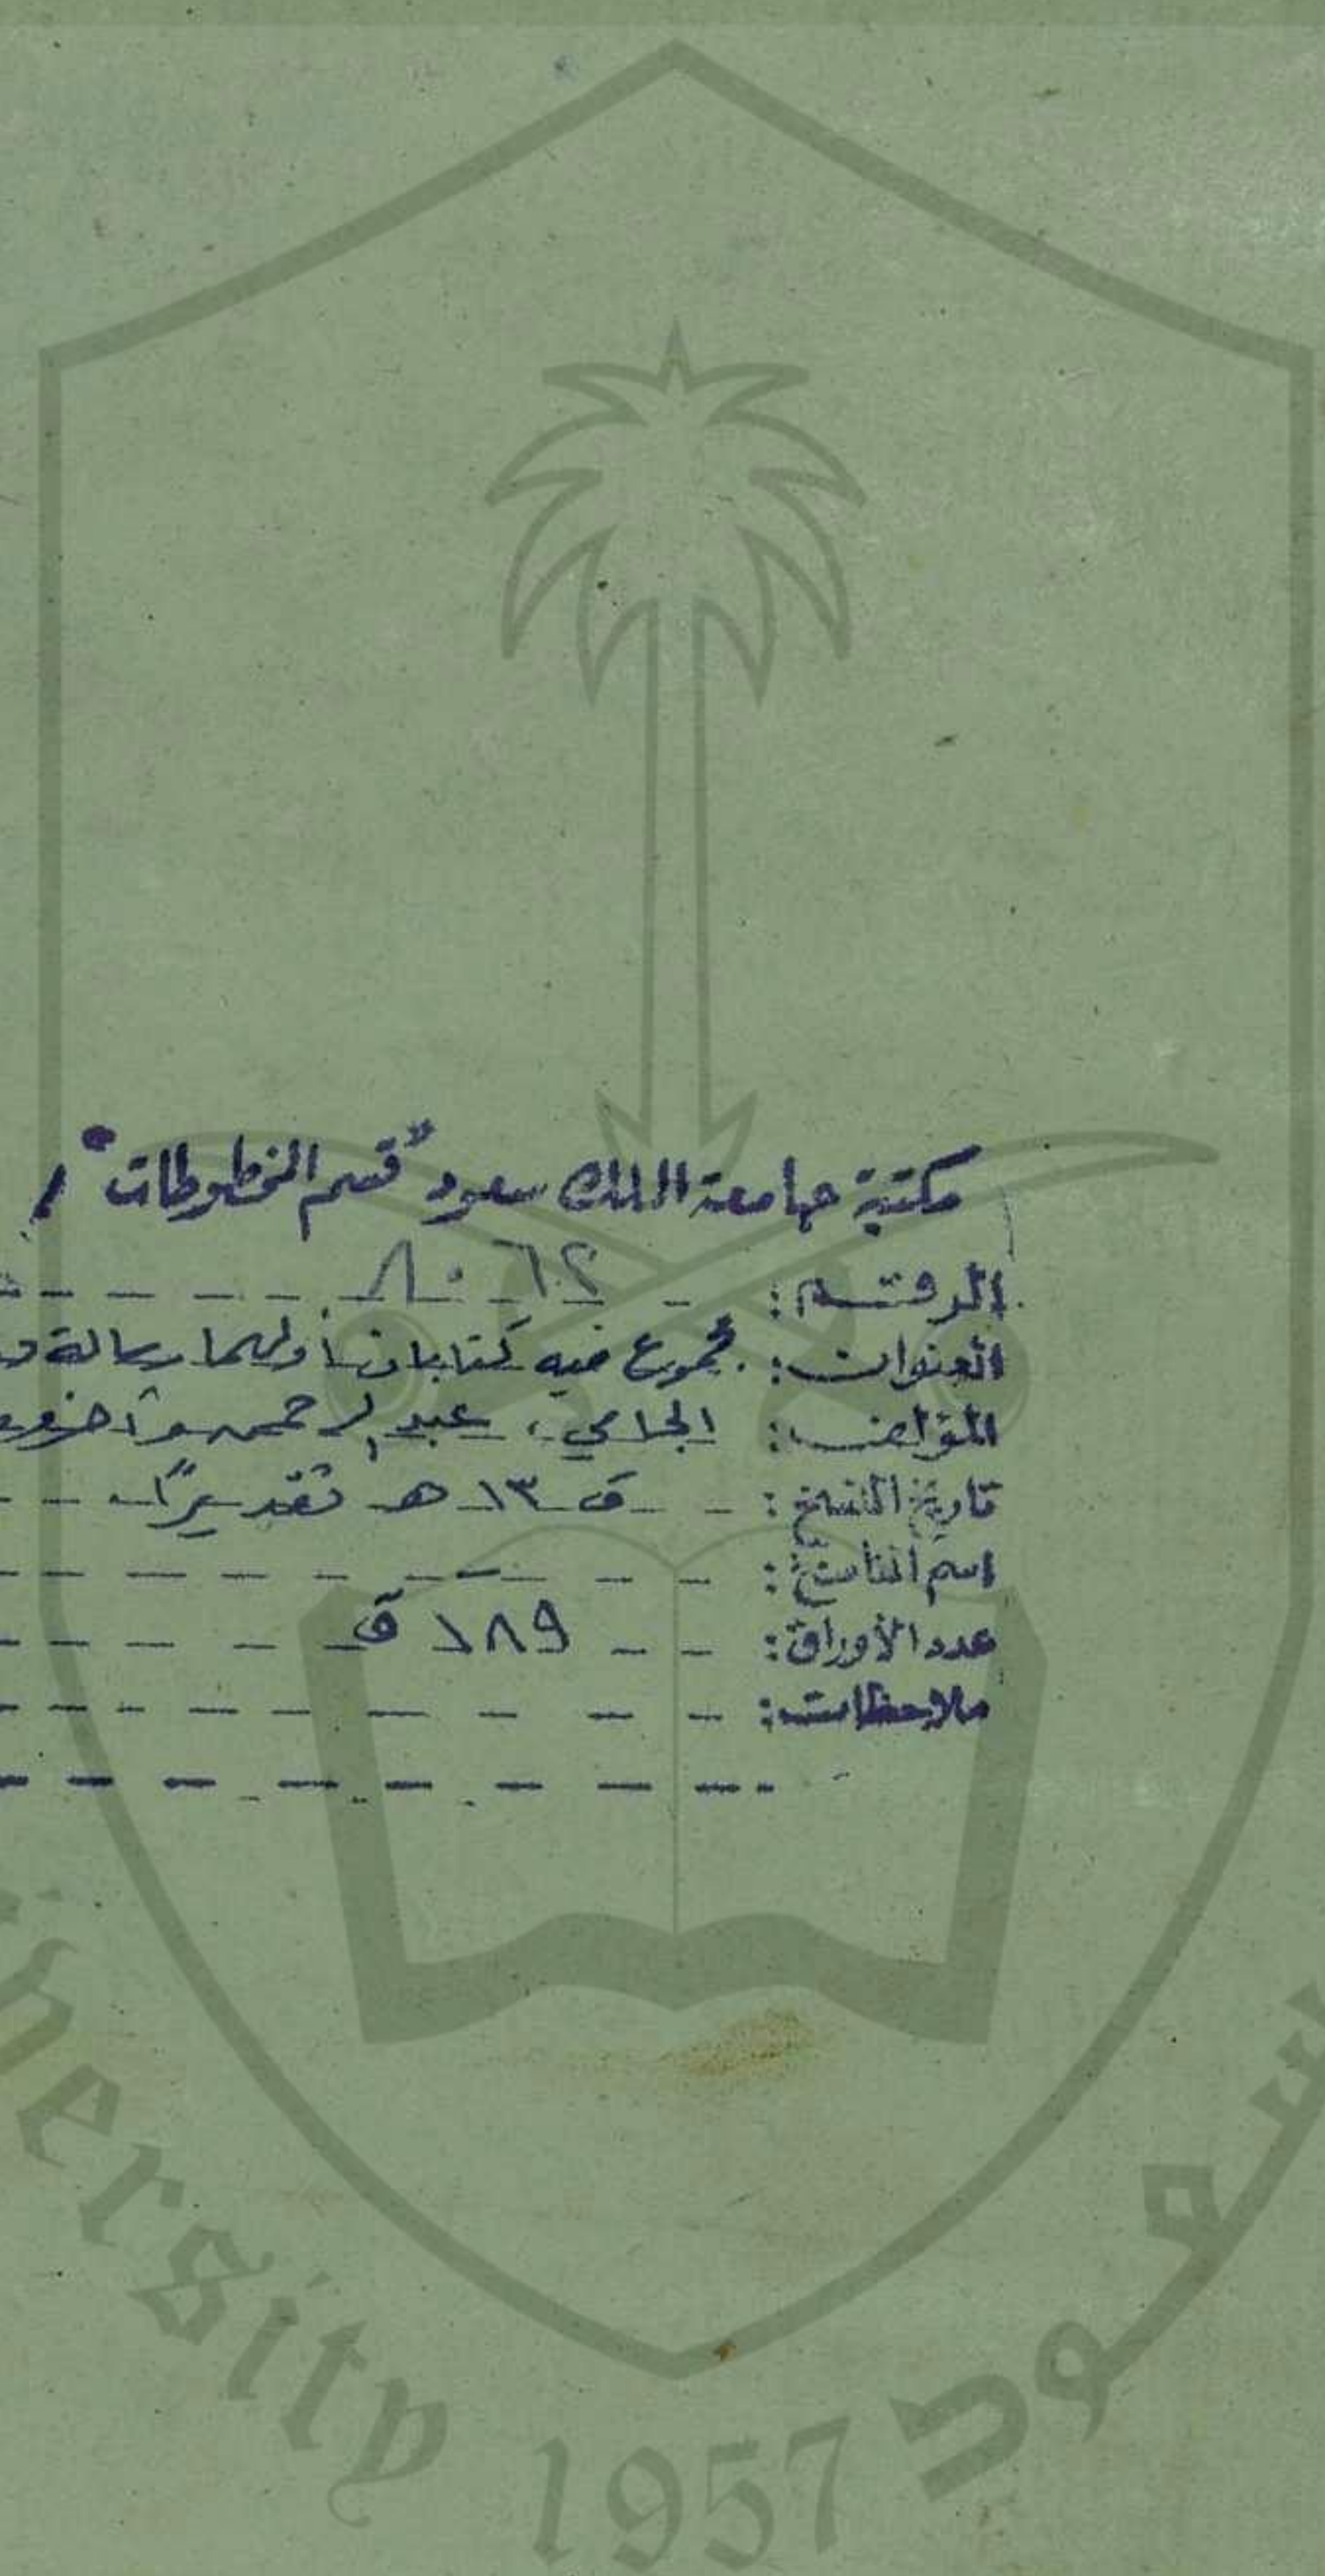 مكتبة جامعة الملك سعود "قسم المخطوطات"
الرقم: ٨٠٦٢
العنوان: مجموع فيه كتابان أولهما رسالة
المؤلف: الجامي، عبد الرحمن وآخرون
تاريخ النسخ: ق ١٣ هـ تقديرًا
اسم الناسخ:
عدد الأوراق: ١٨٩ ق
ملاحظات:
ersity 1957